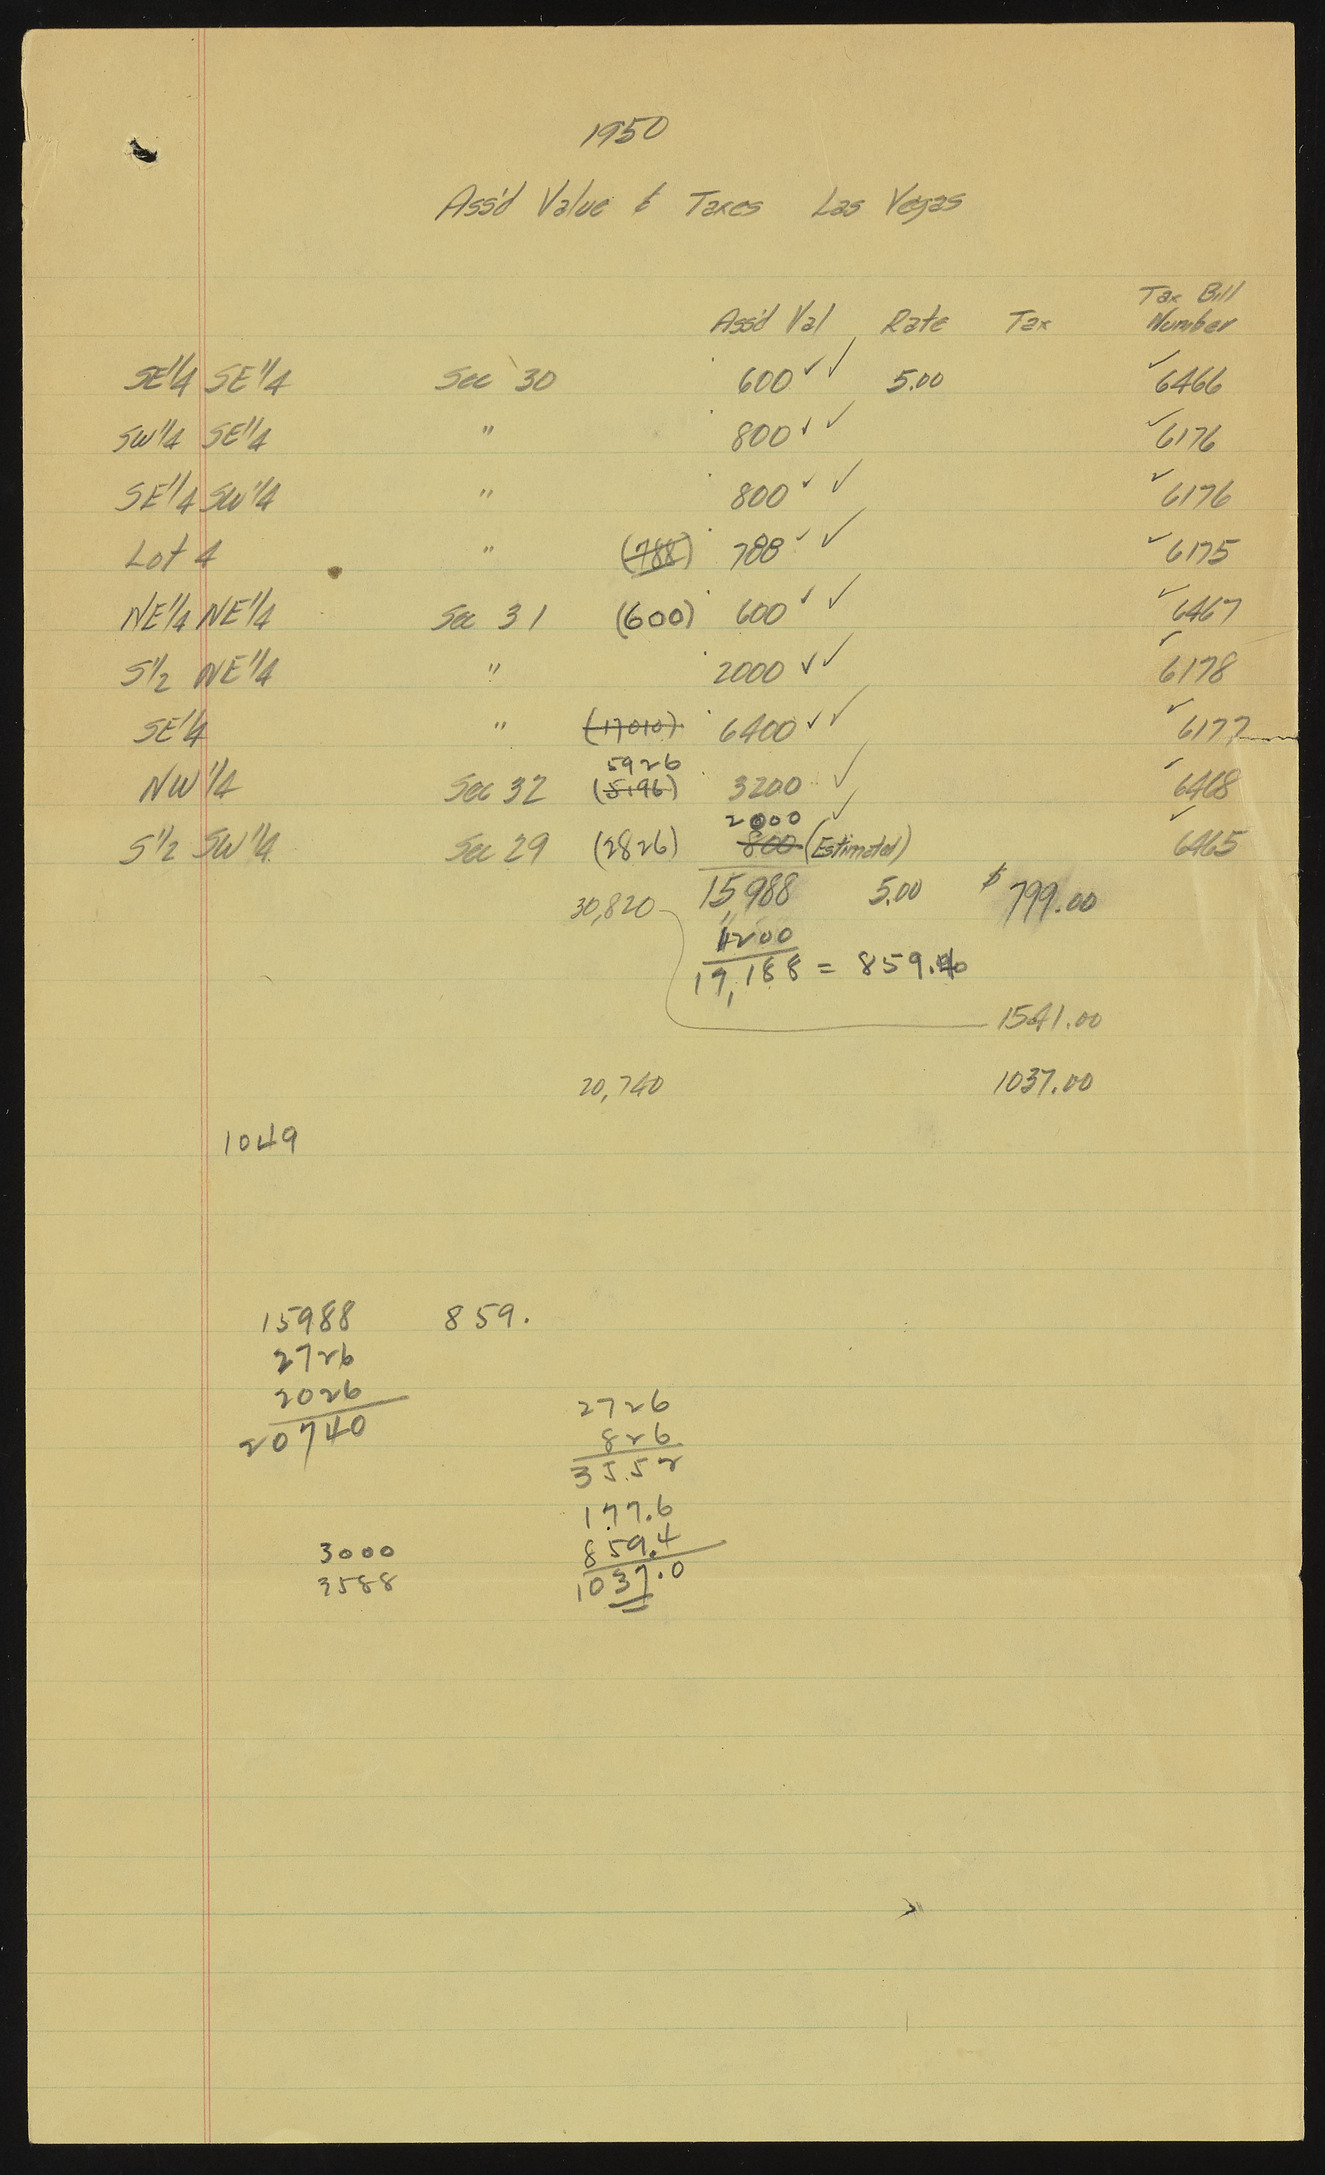 1950
Ass'd Value & Taxes Las Vegas
Tax Bill
Ass'd Val Rate Tax Number
SE 1/4 SE 1/4 Sec 30 600 ✓ ✓ 5.00 ✓ 6466
SW 1/4 SE 1/4 " 800 ✓ ✓ ✓ 6176
SE 1/4 SW 1/4 " 800 ✓ ✓ ✓ 6176
Lot 4 " (788) 788 ✓ ✓ ✓ 6175
NE 1/4 NE 1/4 Sec 31 (600) 600 ✓ ✓ ✓ 6467
S 1/2 NE 1/4 " 2000 ✓ ✓ ✓ 6178
SE 1/4 " (17010) 6400 ✓ ✓ ✓ 6177
5926
NW 1/4 Sec 32 (5196) 3200 ✓ ✓ 6468
2000 ✓
S 1/2 SW 1/4 Sec 29 (2826) 800 (Estimated) ✓ 6465
30,820 15,988 5.00 $ 799.00
1200
17,188 = 859.40
1541.00
20,740 1037.00
1049
15988 859.
2726
2026
20740
2726
826
3552
177.6
859.4
1037.0
3000
3588